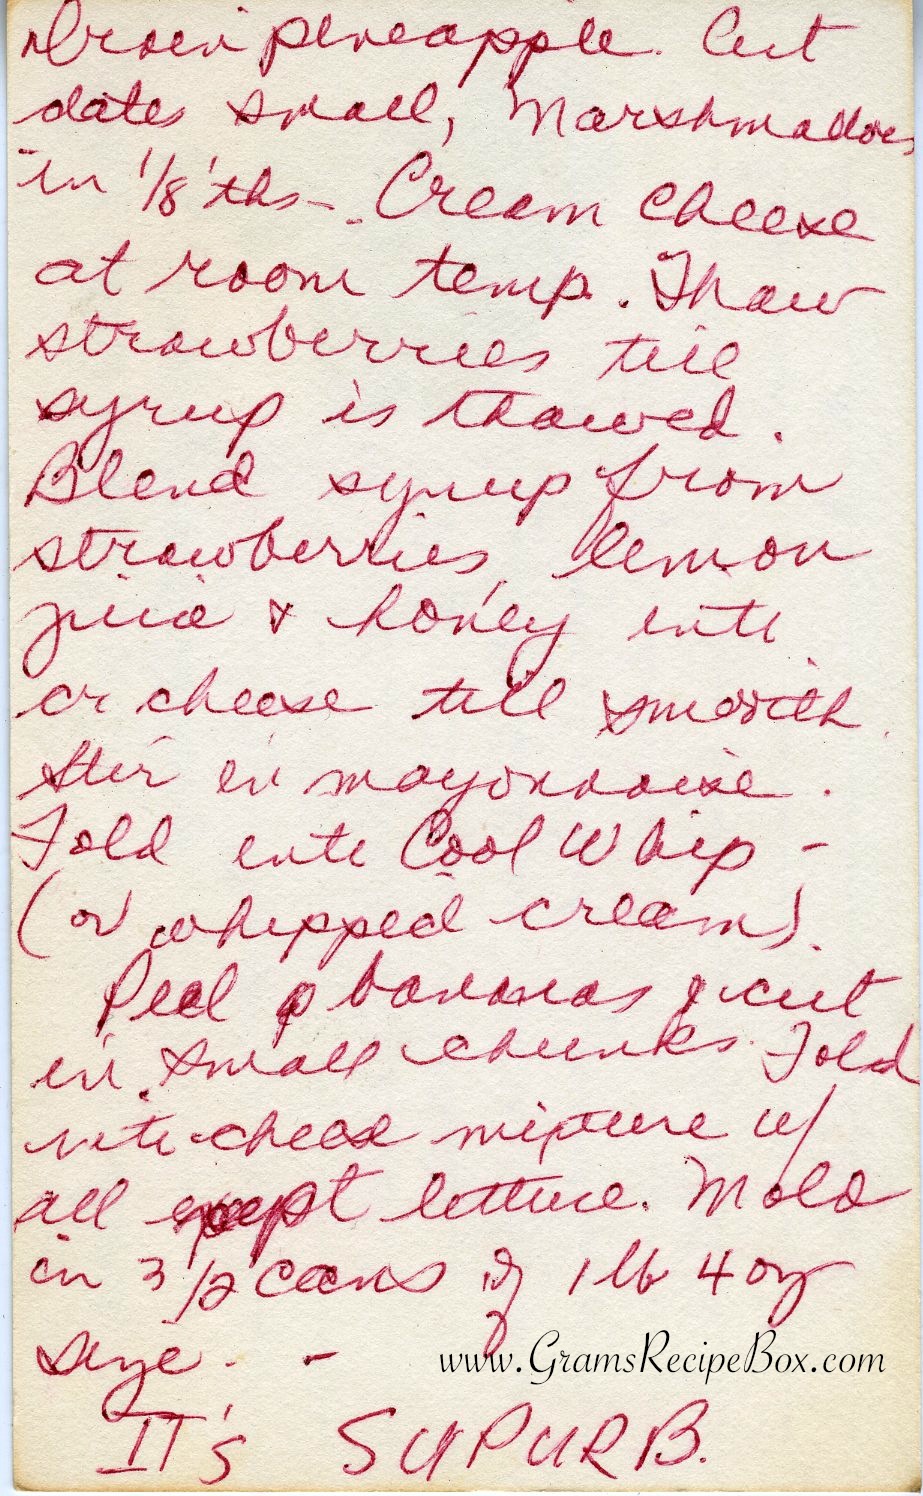 Drain pineapple. Cut
dates small, Marshmallows
in 1/8'ths - Cream cheese
at room temp. Thaw
strawberries till
syrup is thawed.
Blend syrup from
strawberries, lemon
juice & honey into
cr cheese till smooth.
Stir in mayonnaise.
Fold into Cool Whip -
(or whipped cream).
Peel bananas & cut
in small chunks. Fold
into cheese mixture w/
all except lettuce. Mold
in 3 1/2 cans of 1 lb 4 oz
size. -
www.GramsRecipeBox.com
IT's SUPURB.